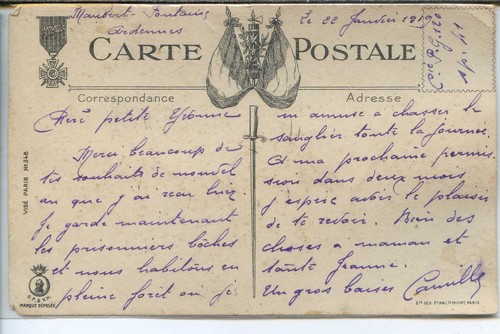 Maubert-Fontaine
Ardennes
Le 22 Janvier 1919
CARTE POSTALE
Correspondance
Adresse
Chère petite Yvonne
Merci beaucoup de
tes souhaits de nouvel
an que j'ai reçu hier.
Je garde maintenant
les prisonniers bôches
et nous habitons en
pleine forêt où je
m amuse a chasser le
sanglier toute la journée.
A ma prochaine permis
sion dans deux mois
j espère avoir le plaisir
de te revoir. Bien des
choses a maman et
tante Jeanne.
Un gros baiser Camille
VISÉ PARIS No 346
MARQUE DÉPOSÉE